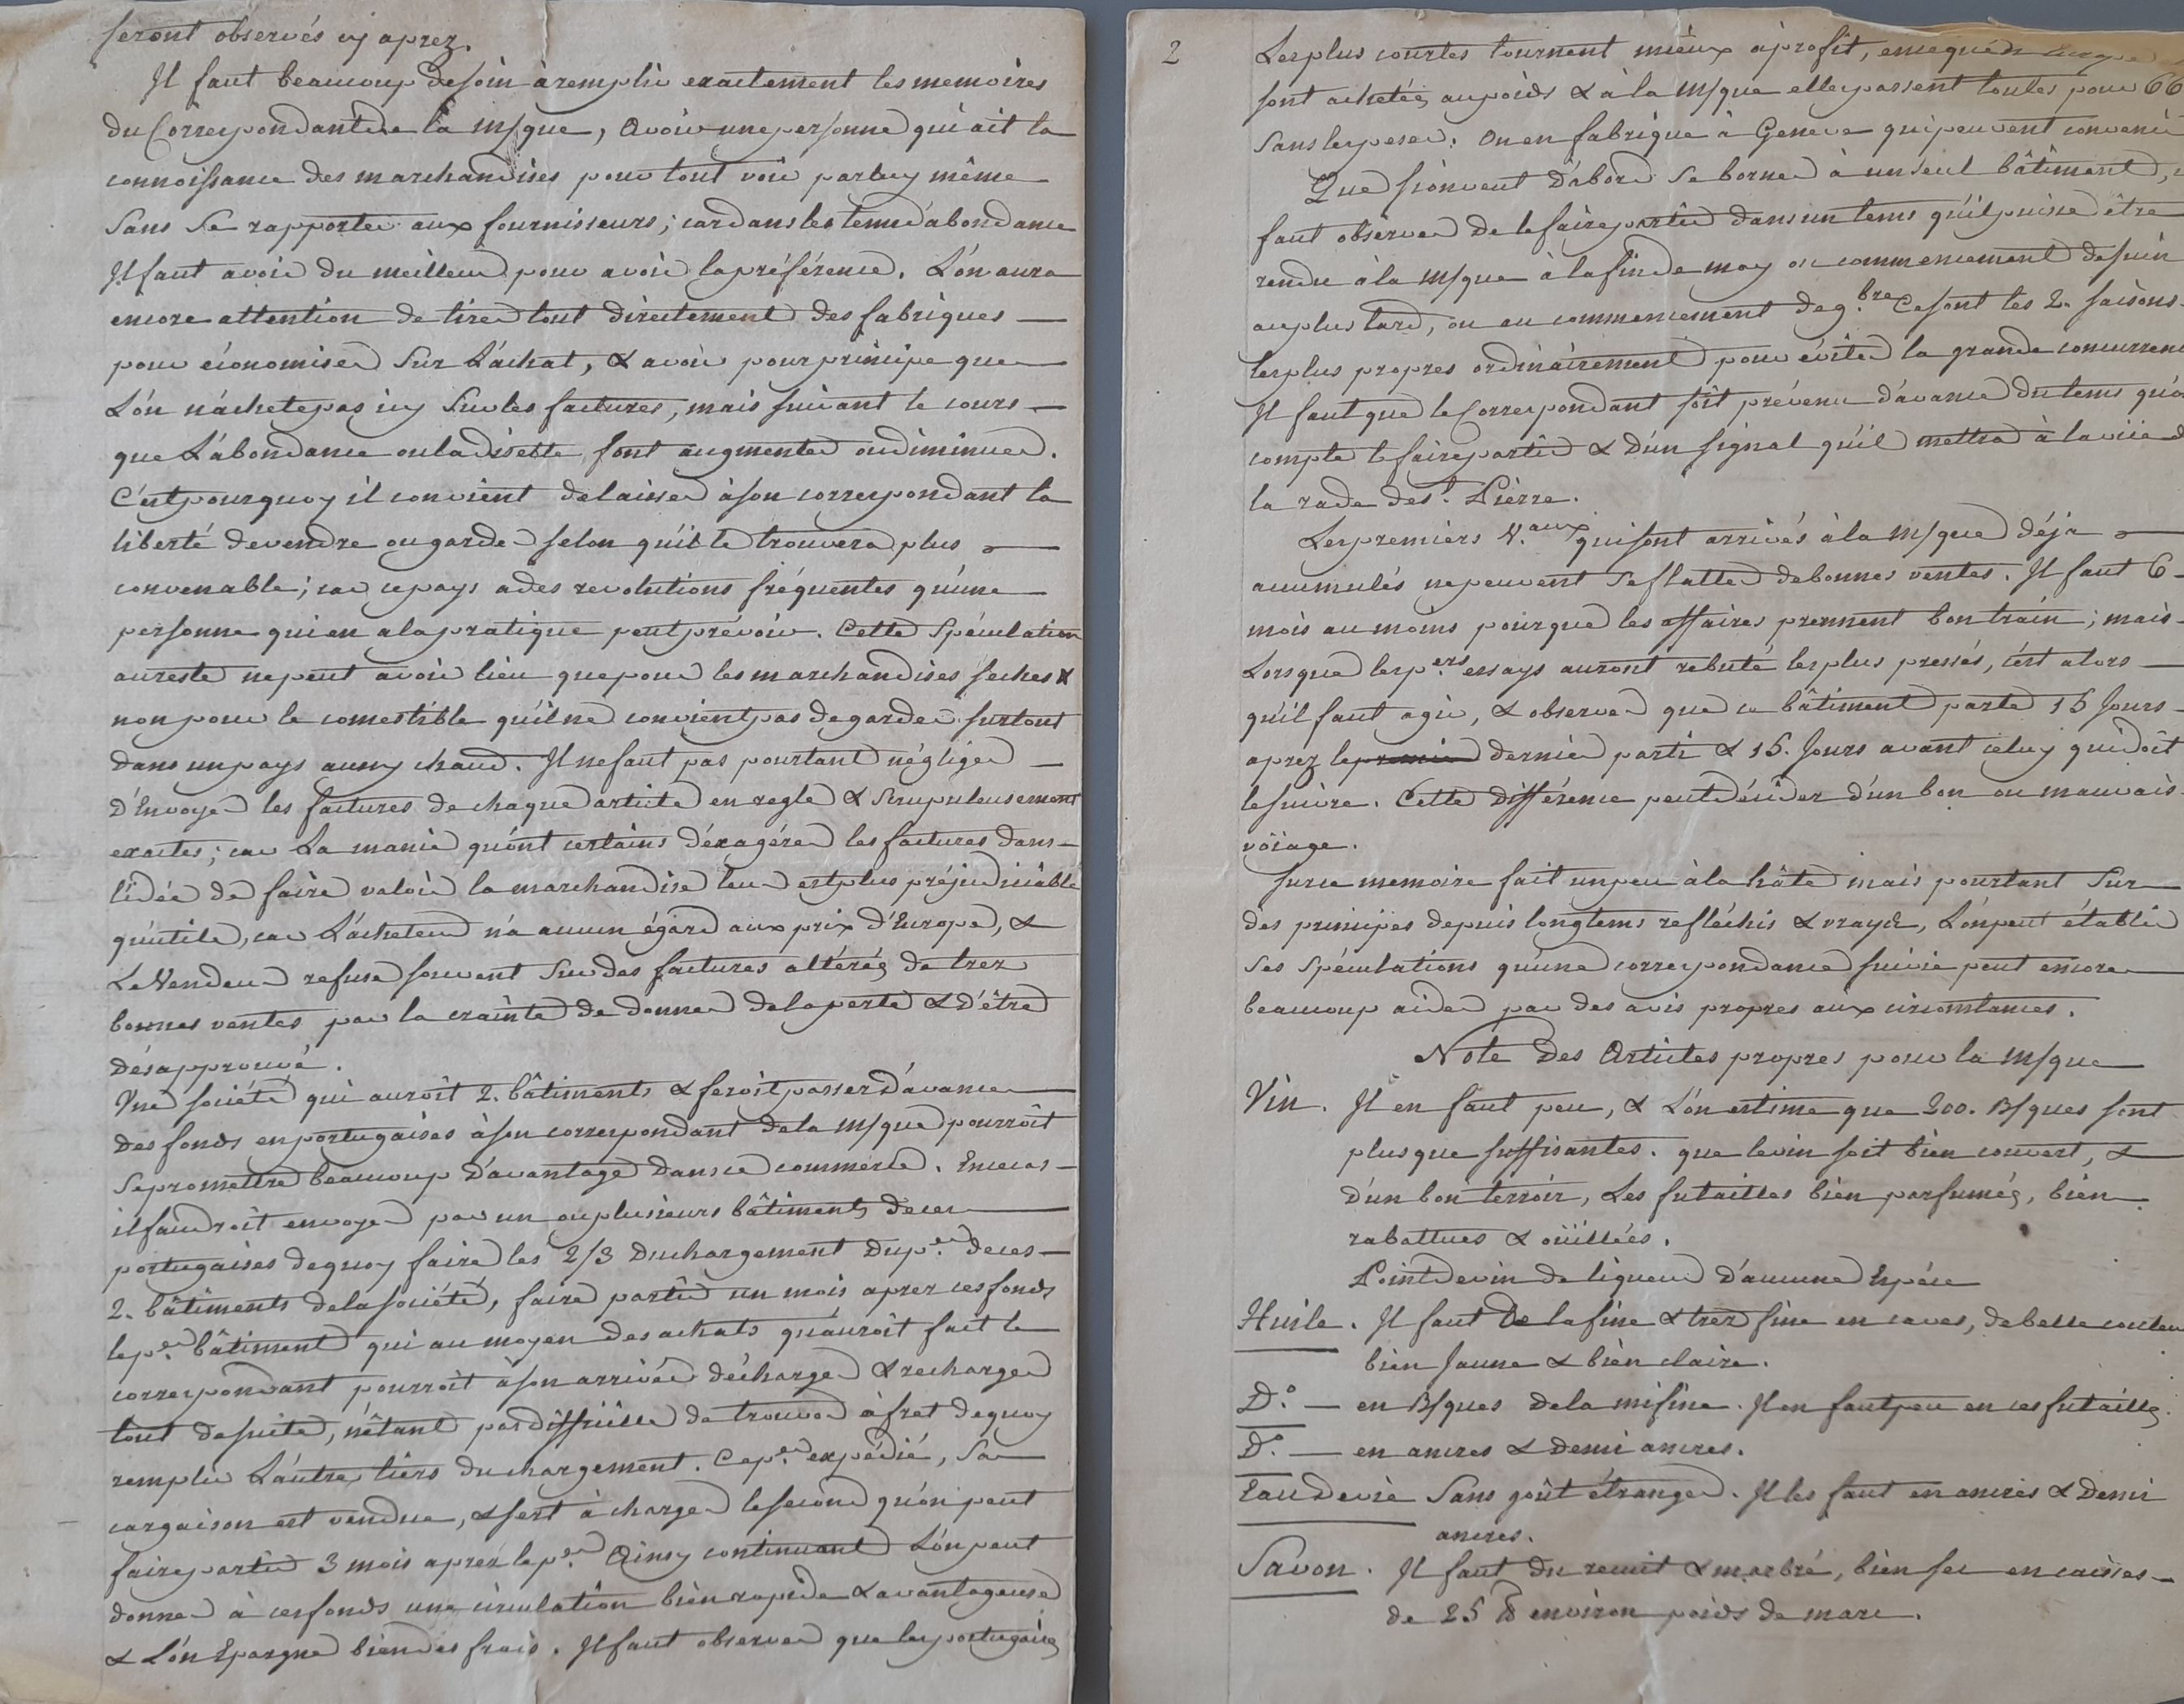 seront observés cy aprez.
Il faut beaucoup de soin à remplir exactement les memoires
du Correspondant de la M/que, avoir une personne qui ait la
connoissance des marchandises pour tout voir par luy même
sans se rapporter aux fournisseurs; car dans les tems d'abondance
Il faut avoir du meilleur pour avoir la préférence. L'on aura
encore attention de tirer tout directement des fabriques —
pour économiser sur L'achat, & avoir pour principe que
L'on n'achete pas icy sur les factures, mais suivant le cours —
que L'abondance ou la disette font augmenter ou diminuer.
C'est pourquoy il convient de laisser à son correspondant la
liberté de vendre ou garder selon qu'il le trouvera plus —
convenable; car ce pays a des revolutions fréquentes qu'une
personne qui en a la pratique peut prévoir. Cette Spéculation
au reste ne peut avoir lieu que pour les marchandises seches &
non pour le comestible qu'il ne convient pas de garder surtout
dans un pays aussy chaud. Il ne faut pas pourtant négliger —
d'Envoyer les factures de chaque article en regle & scrupuleusement
exactes; car La manie qu'ont certains d'éxagérer les factures dans —
l'idée de faire valoir la marchandise leur est plus préjudiciable
qu'utile, car L'acheteur n'a aucun égard aux prix d'Europe, &
Le Vendeur refuse souvent sur des factures altérées de trez
bonnes ventes par la crainte de donner de la perte & d'être
désapprouvé.
Une société qui auroit 2. bâtiments & feroit passer d'avance
des fonds en portugaises à son correspondant de la M/que pourroit
se promettre beaucoup d'avantage dans ce commerce. En ce cas —
il faudroit envoyer par un ou plusieurs bâtiments de ces
portugaises de quoy faire les 2/3 du chargement du p.er de ces —
2. bâtiments de la société, faire partir un mois aprez ces fonds
le p.er bâtiment qui au moyen des achats qu'auroit fait le
correspondant pourroit à son arrivée décharger & recharger
tout de suite, n'étant pas difficille de trouver à fret de quoy
remplir L'autre tiers du chargement. Ce p.er expédié, sa
cargaison est vendue, & sert à charger le second qu'on peut
faire partir 3 mois aprez le p.er Ainsy continuant L'on peut
donner à ces fonds une circulation bien rapide & avantageuse
& L'on Epargne bien des frais. Il faut observer que les portugaises
2
Les plus courtes tournent mieux à profit,
sont achetées au poids & à la M/que elles passent toutes pour 66
sans les peser. On en fabrique à Geneve qui peuvent convenir
Que si on veut d'abord se borner à un seul bâtiment,
faut observer de le faire partir dans un tems qu'il puisse être
rendu à la M/que à la fin de may ou commencement de Juin
au plus tard, ou au commencement de 9.bre Ce sont les 2. saisons
les plus propres ordinairement pour éviter la grande concurrence
Il faut que le Correspondant soit prévenu d'avance du tems qu'on
compte le faire partir & d'un signal qu'il mettra à la vüe de
la rade de S.t Pierre.
Les premiers V.aux qui sont arrivés à la M/que déja —
accumulés ne peuvent se flatter de bonnes ventes. Il faut 6 —
mois au moins pour que les affaires prennent bon train; mais —
Lorsque les p.ers essays auront rebuté les plus pressés, c'est alors —
qu'il faut agir, & observer que ce bâtiment parte 15 Jours —
aprez le premier dernier parti & 15. Jours avant celuy qui doit
le suivre. Cette différence peut décider d'un bon ou mauvais —
voiage.
Sur ce memoire fait un peu à la hâte mais pourtant sur
des principes depuis longtems refléchis & vrays, L'on peut établir
ses spéculations qu'une correspondance suivie peut encore
beaucoup aider par des avis propres aux circonstances.
Note des Articles propres pour la M/que
Vin. Il en faut peu, & L'on estime que 200. B/ques sont
plus que suffisantes. que le vin soit bien couvert, &
d'un bon terroir, Les futailles bien parfumées, bien
rabattues & oüillées.
Point de vin de liqueur d'aucune Espéce
Huile. Il faut de la fine & trez fine en caves, de belle couleur
bien Jaune & bien claire.
D.o — en B/ques de la mifine. Il en faut peu en ces futailles.
D.o — en ancres & demi ancres.
Eau de vie sans goût étranger. Il les faut en ancres & demi
ancres.
Savon. Il faut du recuit & marbré, bien sec en caisses —
de 25 ℔ environ poids de marc.